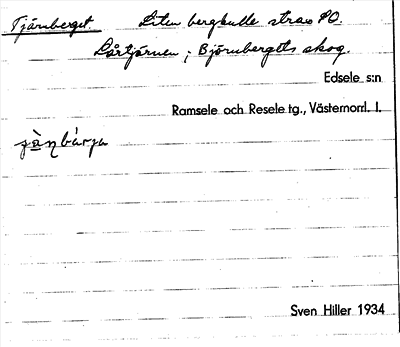 Tjärnberget. Liten bergkulle strax SO.
Lårtjärnen; Björnbergets skog.
Edsele s:n
Ramsele och Resele tg., Västernorrl. l.
Sven Hiller 1934